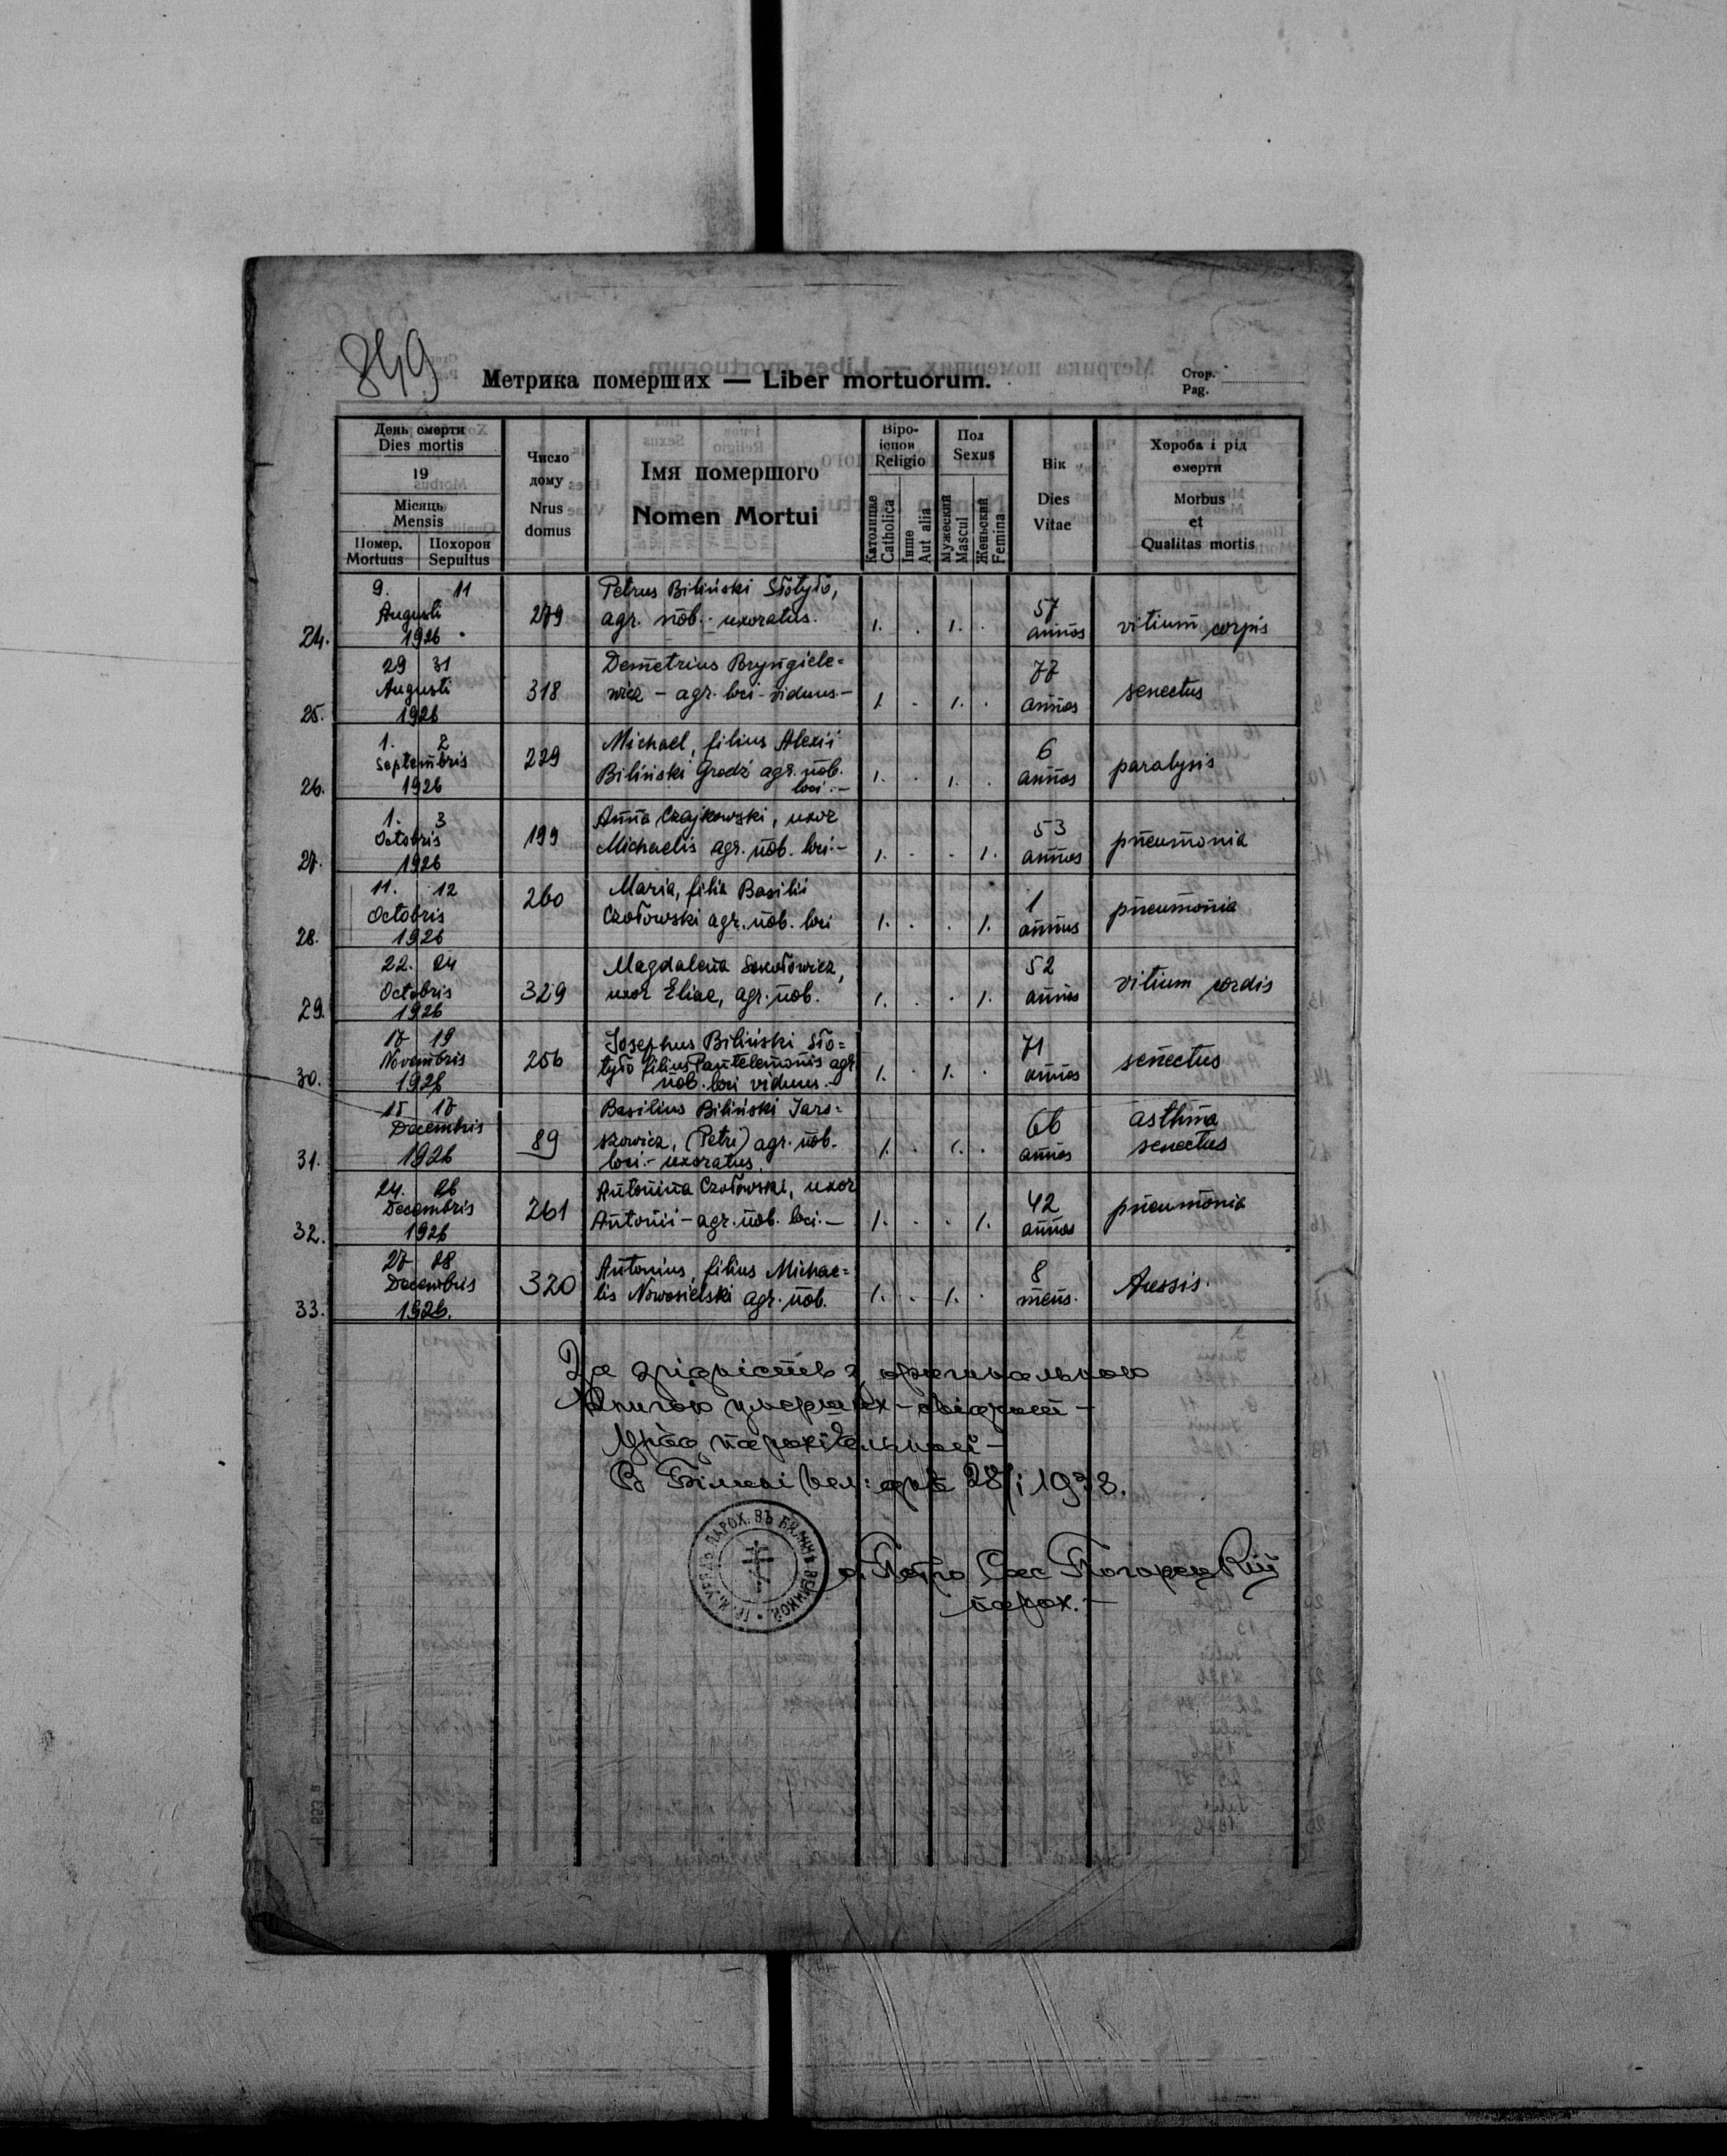 849
Метрика померших — Liber mortuorum.
Стор.
Pag.
День смерти
Dies mortis
19
Місяць
Mensis
Помер. Похорон
Mortuus Sepultus
Число
дому
Nrus
domus
Імя помершого
Nomen Mortui
Віро-
іспов
Religio
Католицке
Catholica
Інше
Aut alia
Пол
Sexus
Мужеский
Mascul
Женьский
Femina
Вік
Dies
Vitae
Хороба і рід
смерти
Morbus
et
Qualitas mortis
24. 9. 11 Augusti 1926 279 Petrus Biliński
agr. nob. uxoratus. 1. . 1. . 57 annos vitium
25. 29 31 Augusti 1926 318 Demetrius Bryngiele=
wicz – agr. loci – viduus – 1. . 1. . 77 annos senectus
26. 1. 2 Septembris 1926 229 Michael, filius Alexii
Biliński Grodź agr. nob.
loci. – 1. . 1. . 6 annos paralysis
27. 1. 3 Octobris 1926 199 Anna Czajkowski, uxor
Michaelis agr. nob. loci. – 1. . . 1. 53 annos pneumonia
28. 11. 12 Octobris 1926 260 Maria, filia Basilii
Czołowski agr. nob. loci 1. . . 1. 1 annus pneumonia
29. 22. 24 Octobris 1926 329 Magdalena Sokołowicz,
uxor Eliae, agr. nob. 1. . . 1. 52 annos vitium cordis
30. 17 19 Novembris 1926 256 Josephus Biliński
filius Pantelemonis agr.
nob. loci viduus. – 1. . 1. . 71 annos senectus
31. 15 17 Decembris 1926 89 Basilius Biliński Jaro=
szowicz, (Petri) agr. nob.
loci. – uxoratus. 1. . 1. . 66 annos asthma
senectus
32. 24. 26 Decembris 1926 261 Antonina Czołowski, uxor
Antonii – agr. nob. loci. – 1. . . 1. 42 annos pneumonia
33. 27 28 Decembris 1926. 320 Antonius, filius Michae=
lis Nowosielski agr. nob. 1. . 1. . 8 mens. tussis.
За згідність з оригінальною
Книгою умерших – свідчит –
Уряд парохіяльний –
В Билині вел: дня 28/i 1938.
ГР. К. УРЯДЪ ПАРОХ. ВЪ БИЛИНѢ ВЕЛИКОЙ
о. Петро Сас
парох. –